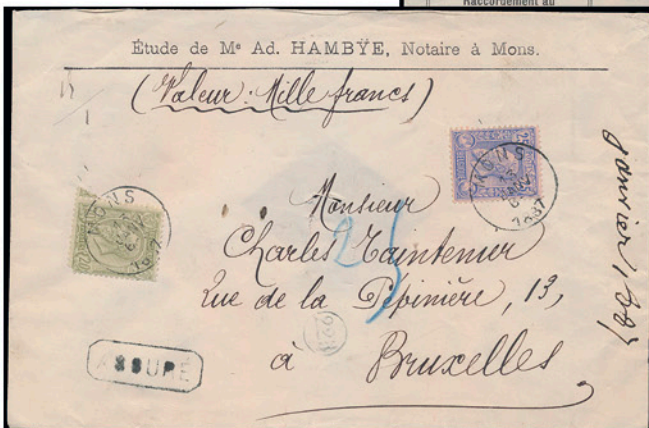 Raccordement au
Étude de Me Ad. HAMBŸE, Notaire à Mons.
(Valeur: Mille francs)
25
MONS
1887
MONS
1887
Monsieur
Charles Taintenier
Rue de la Pépinière, 13,
à Bruxelles
ASSURÉ
25
janvier 1887